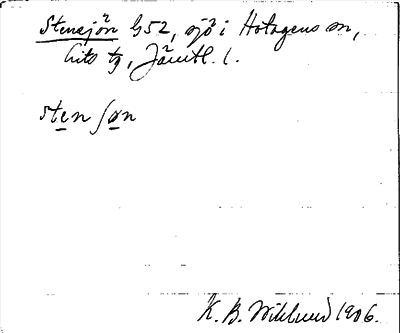 Stensjön G52, sjö i Hotagens sn,
Lits tg, Jämtl. l.
sten ſøn
K. B. Wiklund 1906.